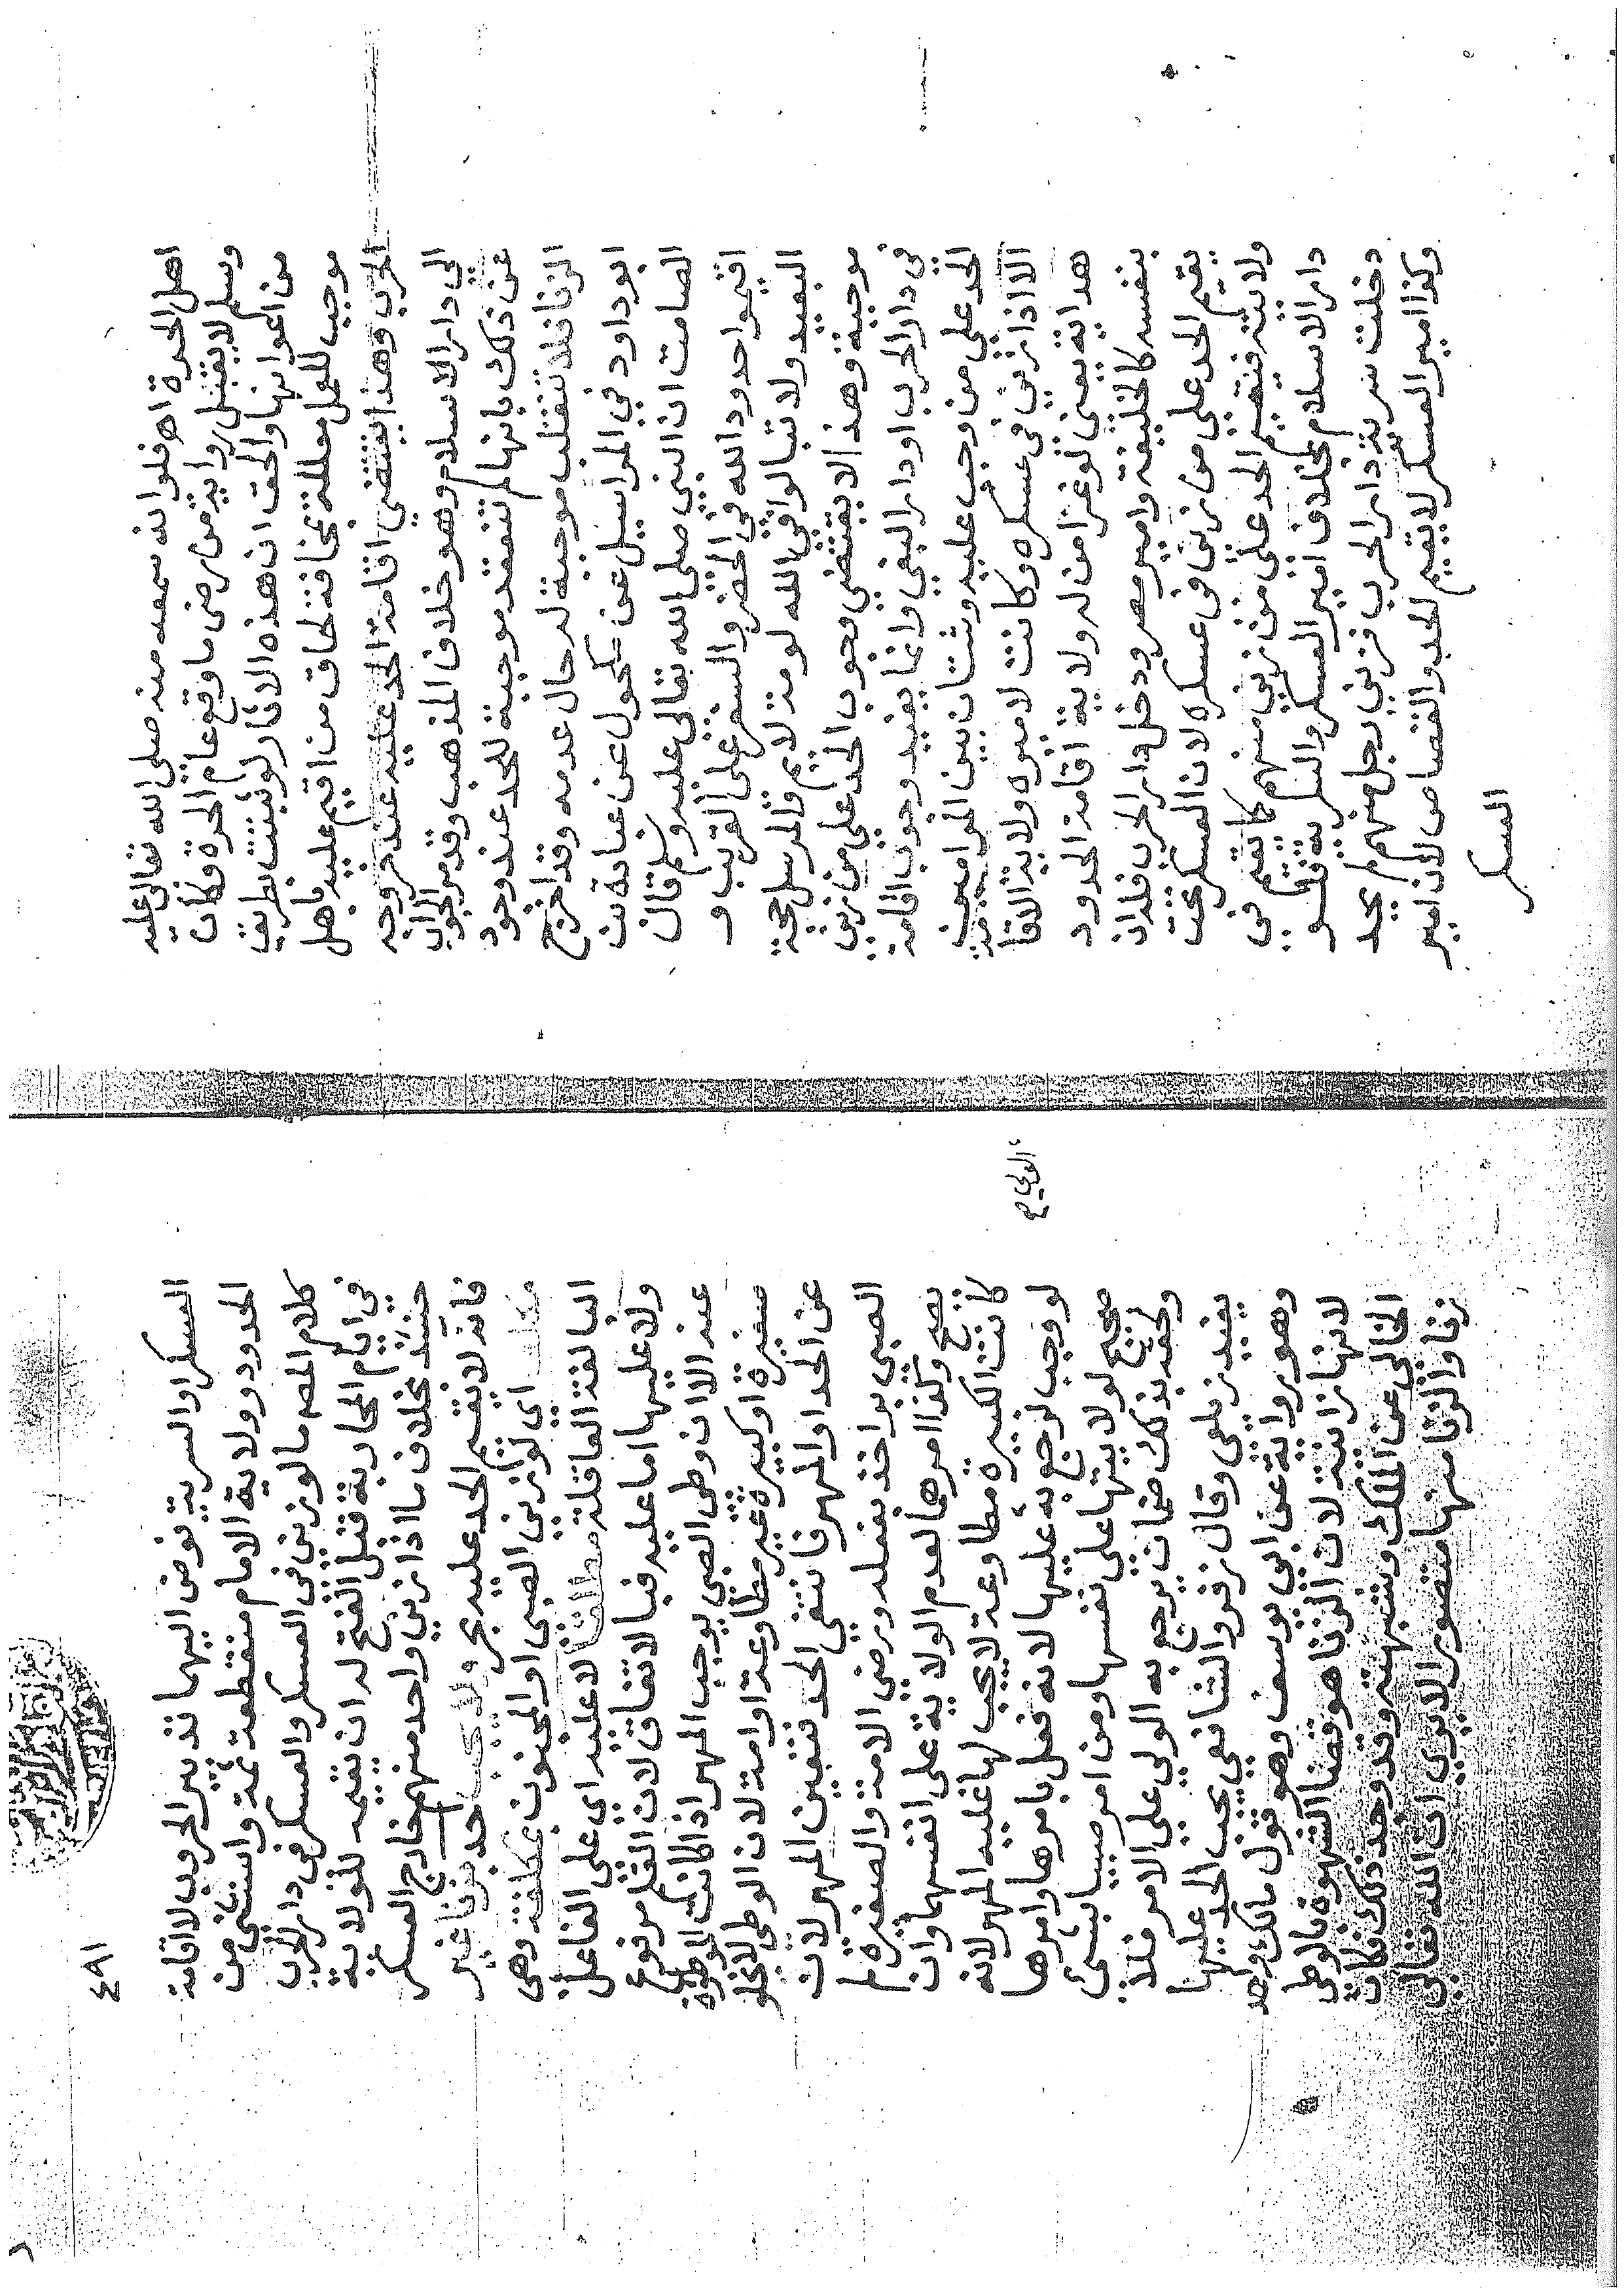 اهل الحرة اهر فلوا انه سمعه منه صلى الله تعالى عليه
وسلم لا يقبل رواية من رضى ما وقع عام الحرة وكان
من اعوانها والحق ان هذه الآثار لو ثبتت بطريق
موجب للعمل معللة بمخافة لحاق من اقيم عليه باهل
الحرب وهذا يقتضي اقامة الحد عليه عند خروجه
الى دار الاسلام وهو خلاف المذهب وقد مر الجواب
عن ذلك بانها لم تنعقد موجبة للحد عند وجود
الزنا فلا تنقلب موجبة له حال عدمه وقد اخرج
ابو داود في المراسيل عن مكحول عن عبادة بن
الصامت ان النبي صلى الله تعالى عليه وسلم قال
اقيموا حدود الله في الحضر والسفر على القريب و
البعيد ولا تبالوا في الله لومة لائم والمرسل حجة
موجبة وهذا لا يقتضي وجوب الحد على من زنى
في دار الحرب او دار البغي وانما يفيد وجوب اقامة
الحد على من وجب عليه وشتان بين المرامين
الا اذا زنى في عسكره وكانت لاميره ولاية الاقامة
هداية يعنى لو غزا من له ولاية اقامة الحدود
بنفسه كالخليفة وامير مصر ودخل دار الحرب فله ان
يقيم الحد على من زنى في عسكره لان العسكر تحت
ولايته فيقيم الحد على من زنى منهم كما يقيم في
دار الاسلام بخلاف امير العسكر والسرية فلو
دخلت سرية دار الحرب فزنى رجل منهم لم يحد
وكذا امير العسكر لا يقيم الحد والقصاص لان امير
العسكر
٤٩١
العسكر او السرية فوض اليهما تدبير الحرب لا اقامة
الحدود وولاية الامام منقطعة ثمة واستثنى من
كلام المص ما لو زنى في العسكر والعسكر في دار الحرب
في ايام المحاربة قبل الفتح له ان يقيمه للولاية
حينئذ بخلاف ما اذا زنى واحد منهم خارج العسكر
فانه لا يقيم الحد عليه بحر ولا يجب حد بزنا غير
مكلف اي لو زنى الصبى او المجنون بمكلفة وهى
البالغة العاقلة مطلقا لا عليه اي على الفاعل
ولا عليها اما عليه فبالاتفاق لان القلم مرفوع
عنه الا ان وطى الصبي يوجب المهر اذا كانت الموطوءة
صغيرة او كبيرة غير مطاوعة او امة لان الوطى لا يخلو
عن الحد او المهر فانتفى الحد فتعين المهر لان
الصبى يؤاخذ بفعله ورضى الامة والصغيرة لم
يصح وكذا امرهما لعدم الولاية على انفسهما وان
كانت الكبيرة مطاوعة لا يجب لها عليه المهر لانه
لو وجب لرجع به عليها لانه فعل بامرها وامرها
الولي ح
صحيح لولايتها على نفسها ومن امر صبيا بشئ
ولحقه بذلك ضمان يرجع به الولي على الامر فلا
يفيد زيلعى وقال زفر والشافعي يجب الحد عليها
وهو رواية عن ابي يوسف وهو قول مالك واحمد
لانها زانية لان الزنا هو قضا الشهوة بالوطى
الخالى عن الملك وشبهته وقد وجد ذلك فكان
زنا والزنا منها متصور الا يرى ان الله تعالى